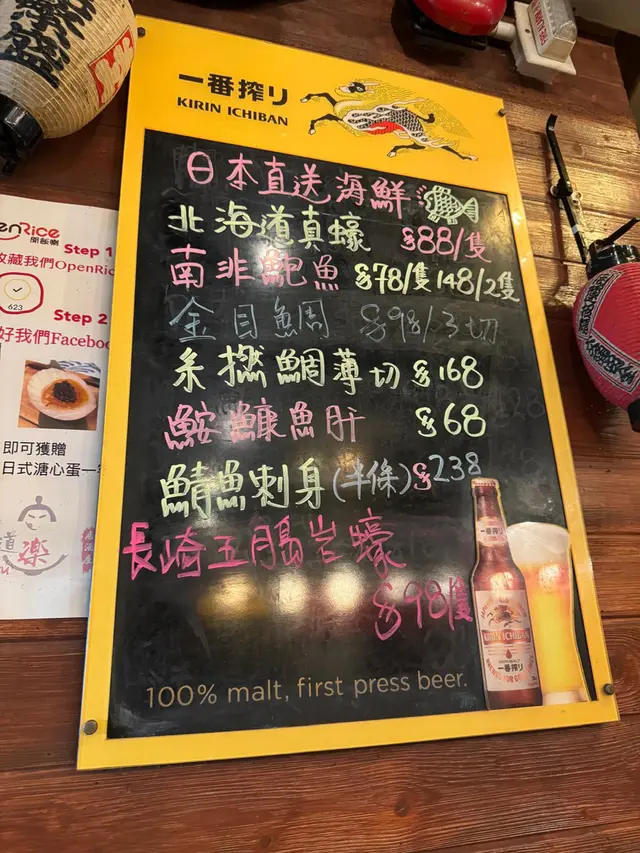 一番搾り
KIRIN ICHIBAN
日本直送海鮮
北海道真蠔 $88/隻
南非鮑魚 $78/隻 148/2隻
金目鯛 $98/3切
糸撚鯛薄切 $168
鮟鱇魚肝 $68
鯖魚刺身(半條) $238
長崎五島岩蠔
$98/隻
100% malt, first press beer.
KIRIN ICHIBAN
一番搾り
penRice
開飯喇
Step 1
收藏我們OpenRic
623
Step 2
好我們Facebo
即可獲贈
日式溏心蛋一
道樂